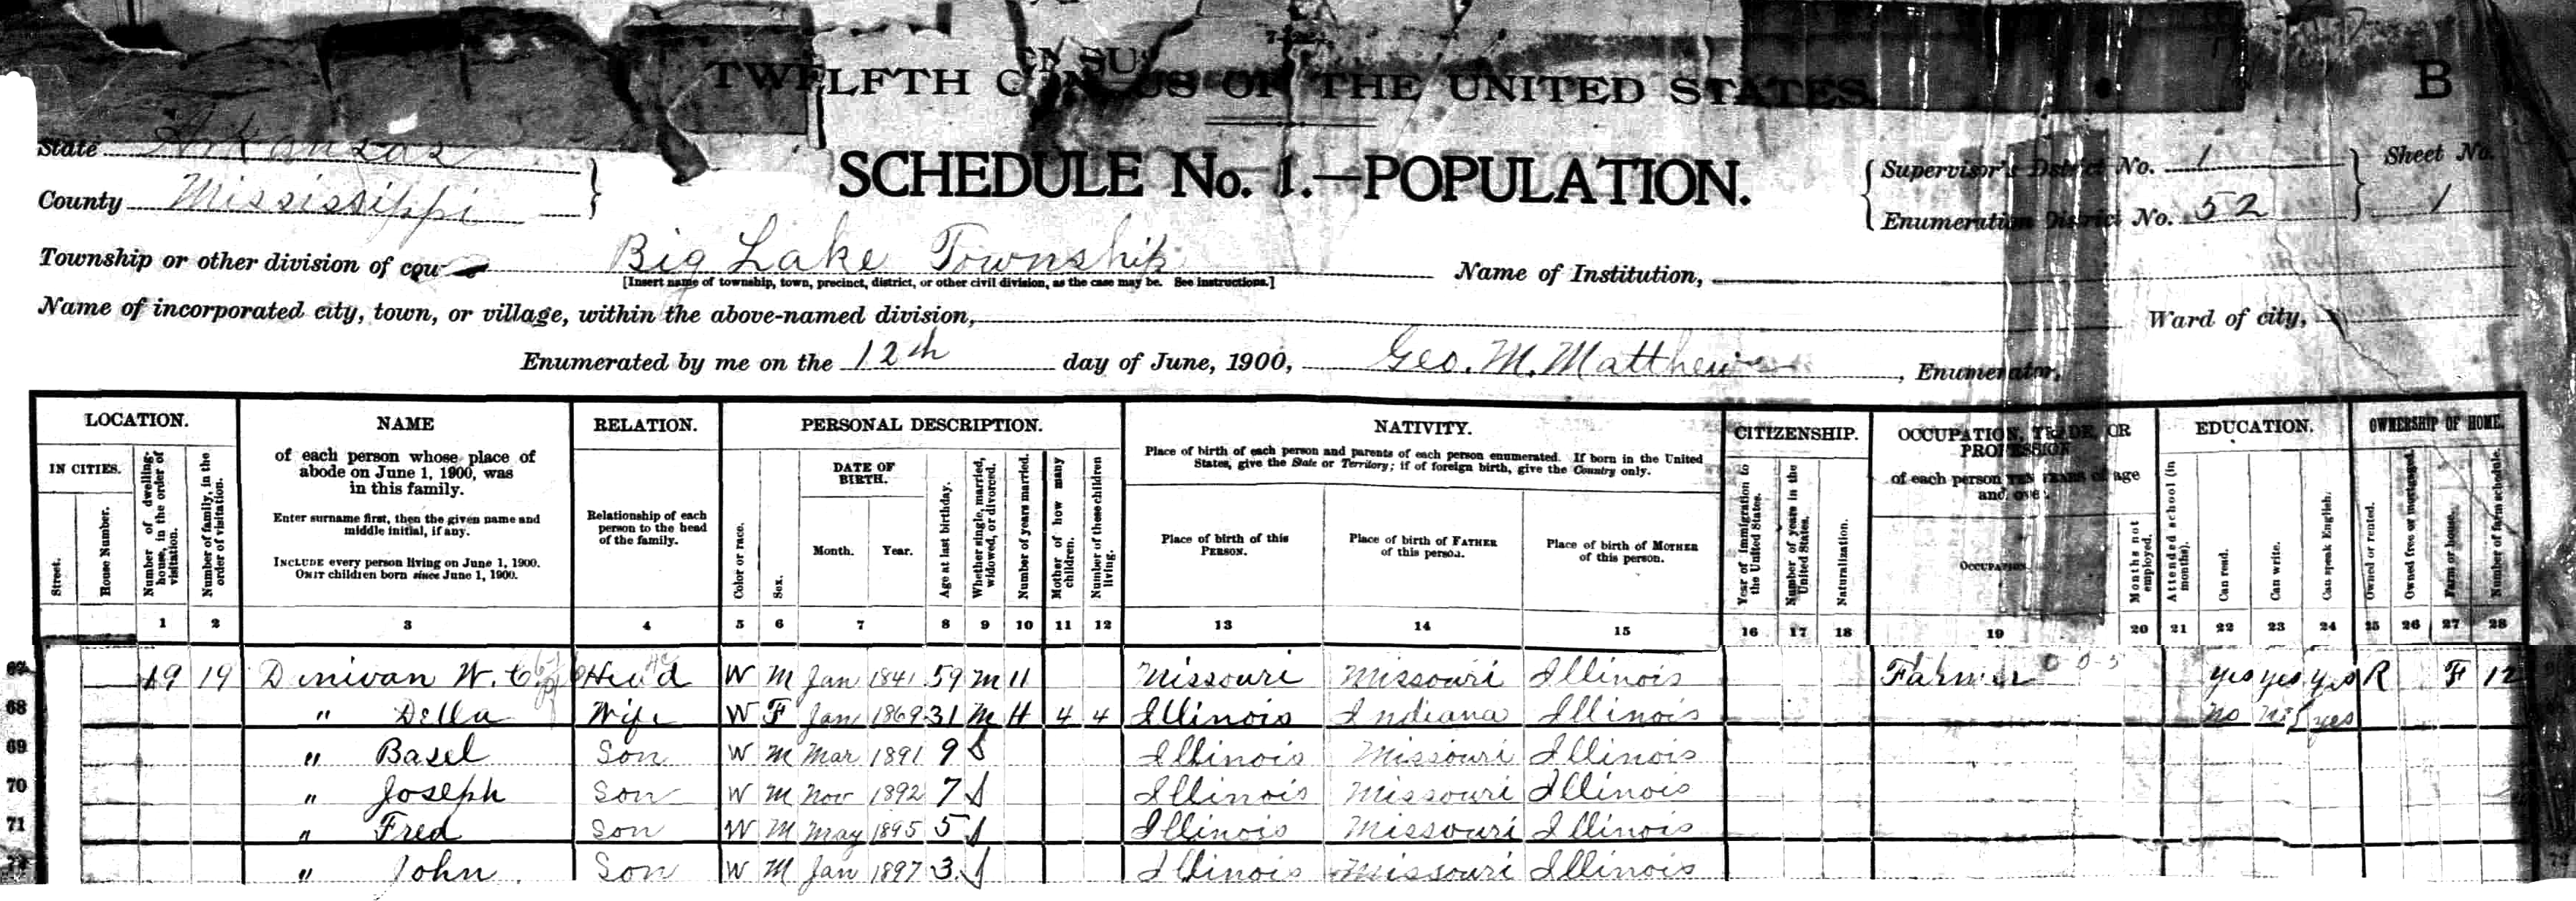 TWELFTH CENSUS OF THE UNITED STATES
B
SCHEDULE No. 1.—POPULATION.
State Arkansas
County Mississippi
Supervisor's District No. 1
Enumeration District No. 52
Sheet No.
1
Township or other division of cou Big Lake Township
[Insert name of township, town, precinct, district, or other civil division, as the case may be. See instructions.]
Name of Institution,
Name of incorporated city, town, or village, within the above-named division,
Ward of city,
Enumerated by me on the 12th day of June, 1900, Geo. M. Matthews, Enumerator,
LOCATION.
IN CITIES.
Street.
House Number.
Number of dwelling-house, in the order of visitation.
Number of family, in the order of visitation.
NAME
of each person whose place of
abode on June 1, 1900, was
in this family.
Enter surname first, then the given name and
middle initial, if any.
INCLUDE every person living on June 1, 1900.
OMIT children born since June 1, 1900.
RELATION.
Relationship of each
person to the head
of the family.
PERSONAL DESCRIPTION.
Color or race.
Sex.
DATE OF
BIRTH.
Month. Year.
Age at last birthday.
Whether single, married, widowed, or divorced.
Number of years married.
Mother of how many children.
Number of these children living.
NATIVITY.
Place of birth of each person and parents of each person enumerated. If born in the United
States, give the State or Territory; if of foreign birth, give the Country only.
Place of birth of this
PERSON.
Place of birth of FATHER
of this person.
Place of birth of MOTHER
of this person.
CITIZENSHIP.
Year of immigration to the United States.
Number of years in the United States.
Naturalization.
OCCUPATION, TRADE, OR
PROFESSION
of each person TEN YEARS of age
and over.
OCCUPATION.
Months not employed.
EDUCATION.
Attended school (in months).
Can read.
Can write.
Can speak English.
OWNERSHIP OF HOME.
Owned or rented.
Owned free or mortgaged.
Farm or house.
Number of farm schedule.
1 2 3 4 5 6 7 8 9 10 11 12 13 14 15 16 17 18 19 20 21 22 23 24 25 26 27 28
19 19 Denivan W. C. Head W M Jan 1841 59 M 11 Missouri Missouri Illinois Farmer yes yes yes R F 12
68 " Della Wife W F Jan 1869 31 M 11 4 4 Illinois Indiana Illinois No No yes
69 " Basel Son W M Mar 1891 9 S Illinois Missouri Illinois
70 " Joseph Son W M Nov 1892 7 S Illinois Missouri Illinois
71 " Fred Son W M May 1895 5 S Illinois Missouri Illinois
" John Son W M Jan 1897 3 S Illinois Missouri Illinois